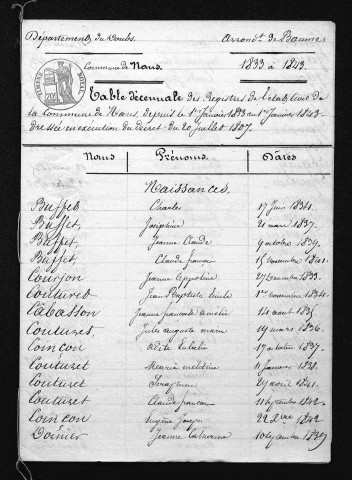 Département du Doubs. Arrond.t de Baume.
Commune de Nans. 1833 à 1843.
Table décennale des Registres de l'état civil de
la commune de Nans, depuis le 1er Janvier 1833 au 1er Janvier 1843
dressée en exécution du décret du 20 Juillet 1807.
Noms Prénoms. Dates
Naissances.
Buffet Charles 17 Juin 1834.
Buffet, Joséphine 21 mars 1837.
Buffet, Jeanne Claude 9 octobre 1839.
Buffet, Claude françois 15 novembre 1841.
Courjon Jeanne 1833.
Couturet Jean Baptiste Emile 1er novembre 1834.
Cabasson Jeanne françoise Amélie 14 août 1835
Couturet, Jules auguste marie 19 mars 1836.
Coinçon 17 octobre 1837.
Couturet Maria 11 Janvier 1838.
Couturet Séraphine 29 avril 1841.
Couturet Claude françois 11 Septembre 1842.
Coinçon Eugène 22 8bre 1842
Doinier Jeanne Catherine 10 Septembre 1839